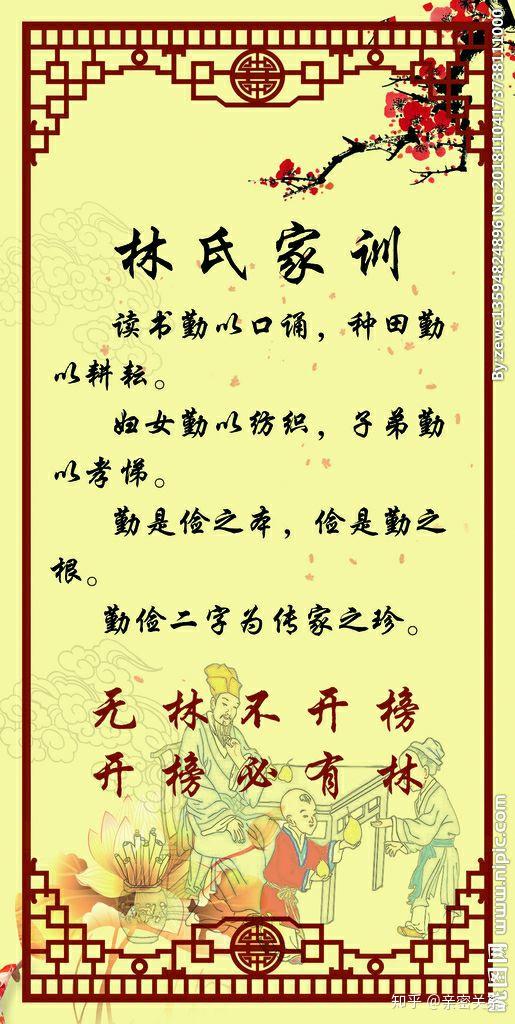 林氏家训
读书勤以口诵，种田勤
以耕耘。
妇女勤以纺织，子弟勤
以孝悌。
勤是俭之本，俭是勤之
根。
勤俭二字为传家之珍。
无林不开榜
开榜必有林
By zewe13594824896 No.20181104173738111000
昵图网 www.nipic.com
知乎 @亲密关系